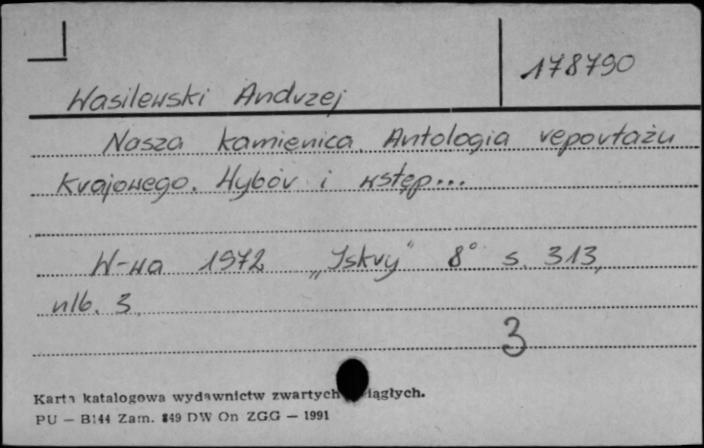 178790
Wasilewski Andrzej
Nasza kamienica. Antologia reportażu
krajowego. Wybór i wstęp...
W-wa 1972 „Iskry" 8° s. 313,
nlb. 3.
3
Karta katalogowa wydawnictw zwartych iągłych.
PU — B144 Zam. 849 DW On ZGG — 1991